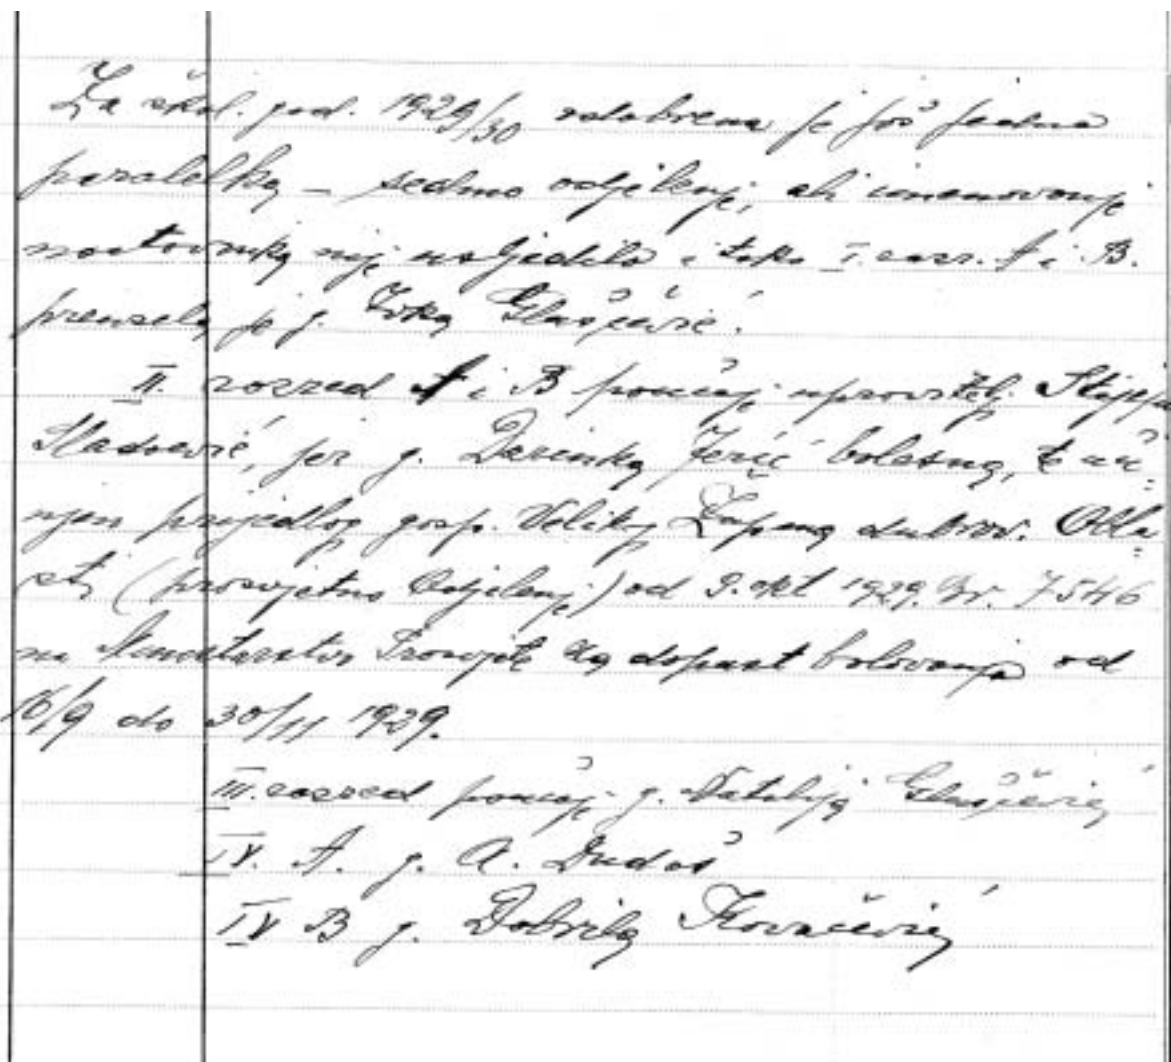 Za škol. god. 1929/30 odobrena je još jedna
paralelka – sedmo odjelenje, ali imenovanje
nastavnika nije usljedilo i tako I. razr. A i B.
preuzela je g. Vlašević.
II. razred A i B poučaje upravitelj Stijepo
jer g. Darinka Jerić bolesna, te uči-
njen prijedlog gosp. Velikog Župana dubrov. Obla-
sti (prosvjetno Odjelenje) od 9. okt 1929. Br. 7546
na Ministarstvo Prosvjete za dopust bolovanja od
16/9 do 30/11 1929.
III. razred poučaje g. Natalija
IV. A. g. A. Dudoš
IV B g. Dobrila Kovačević